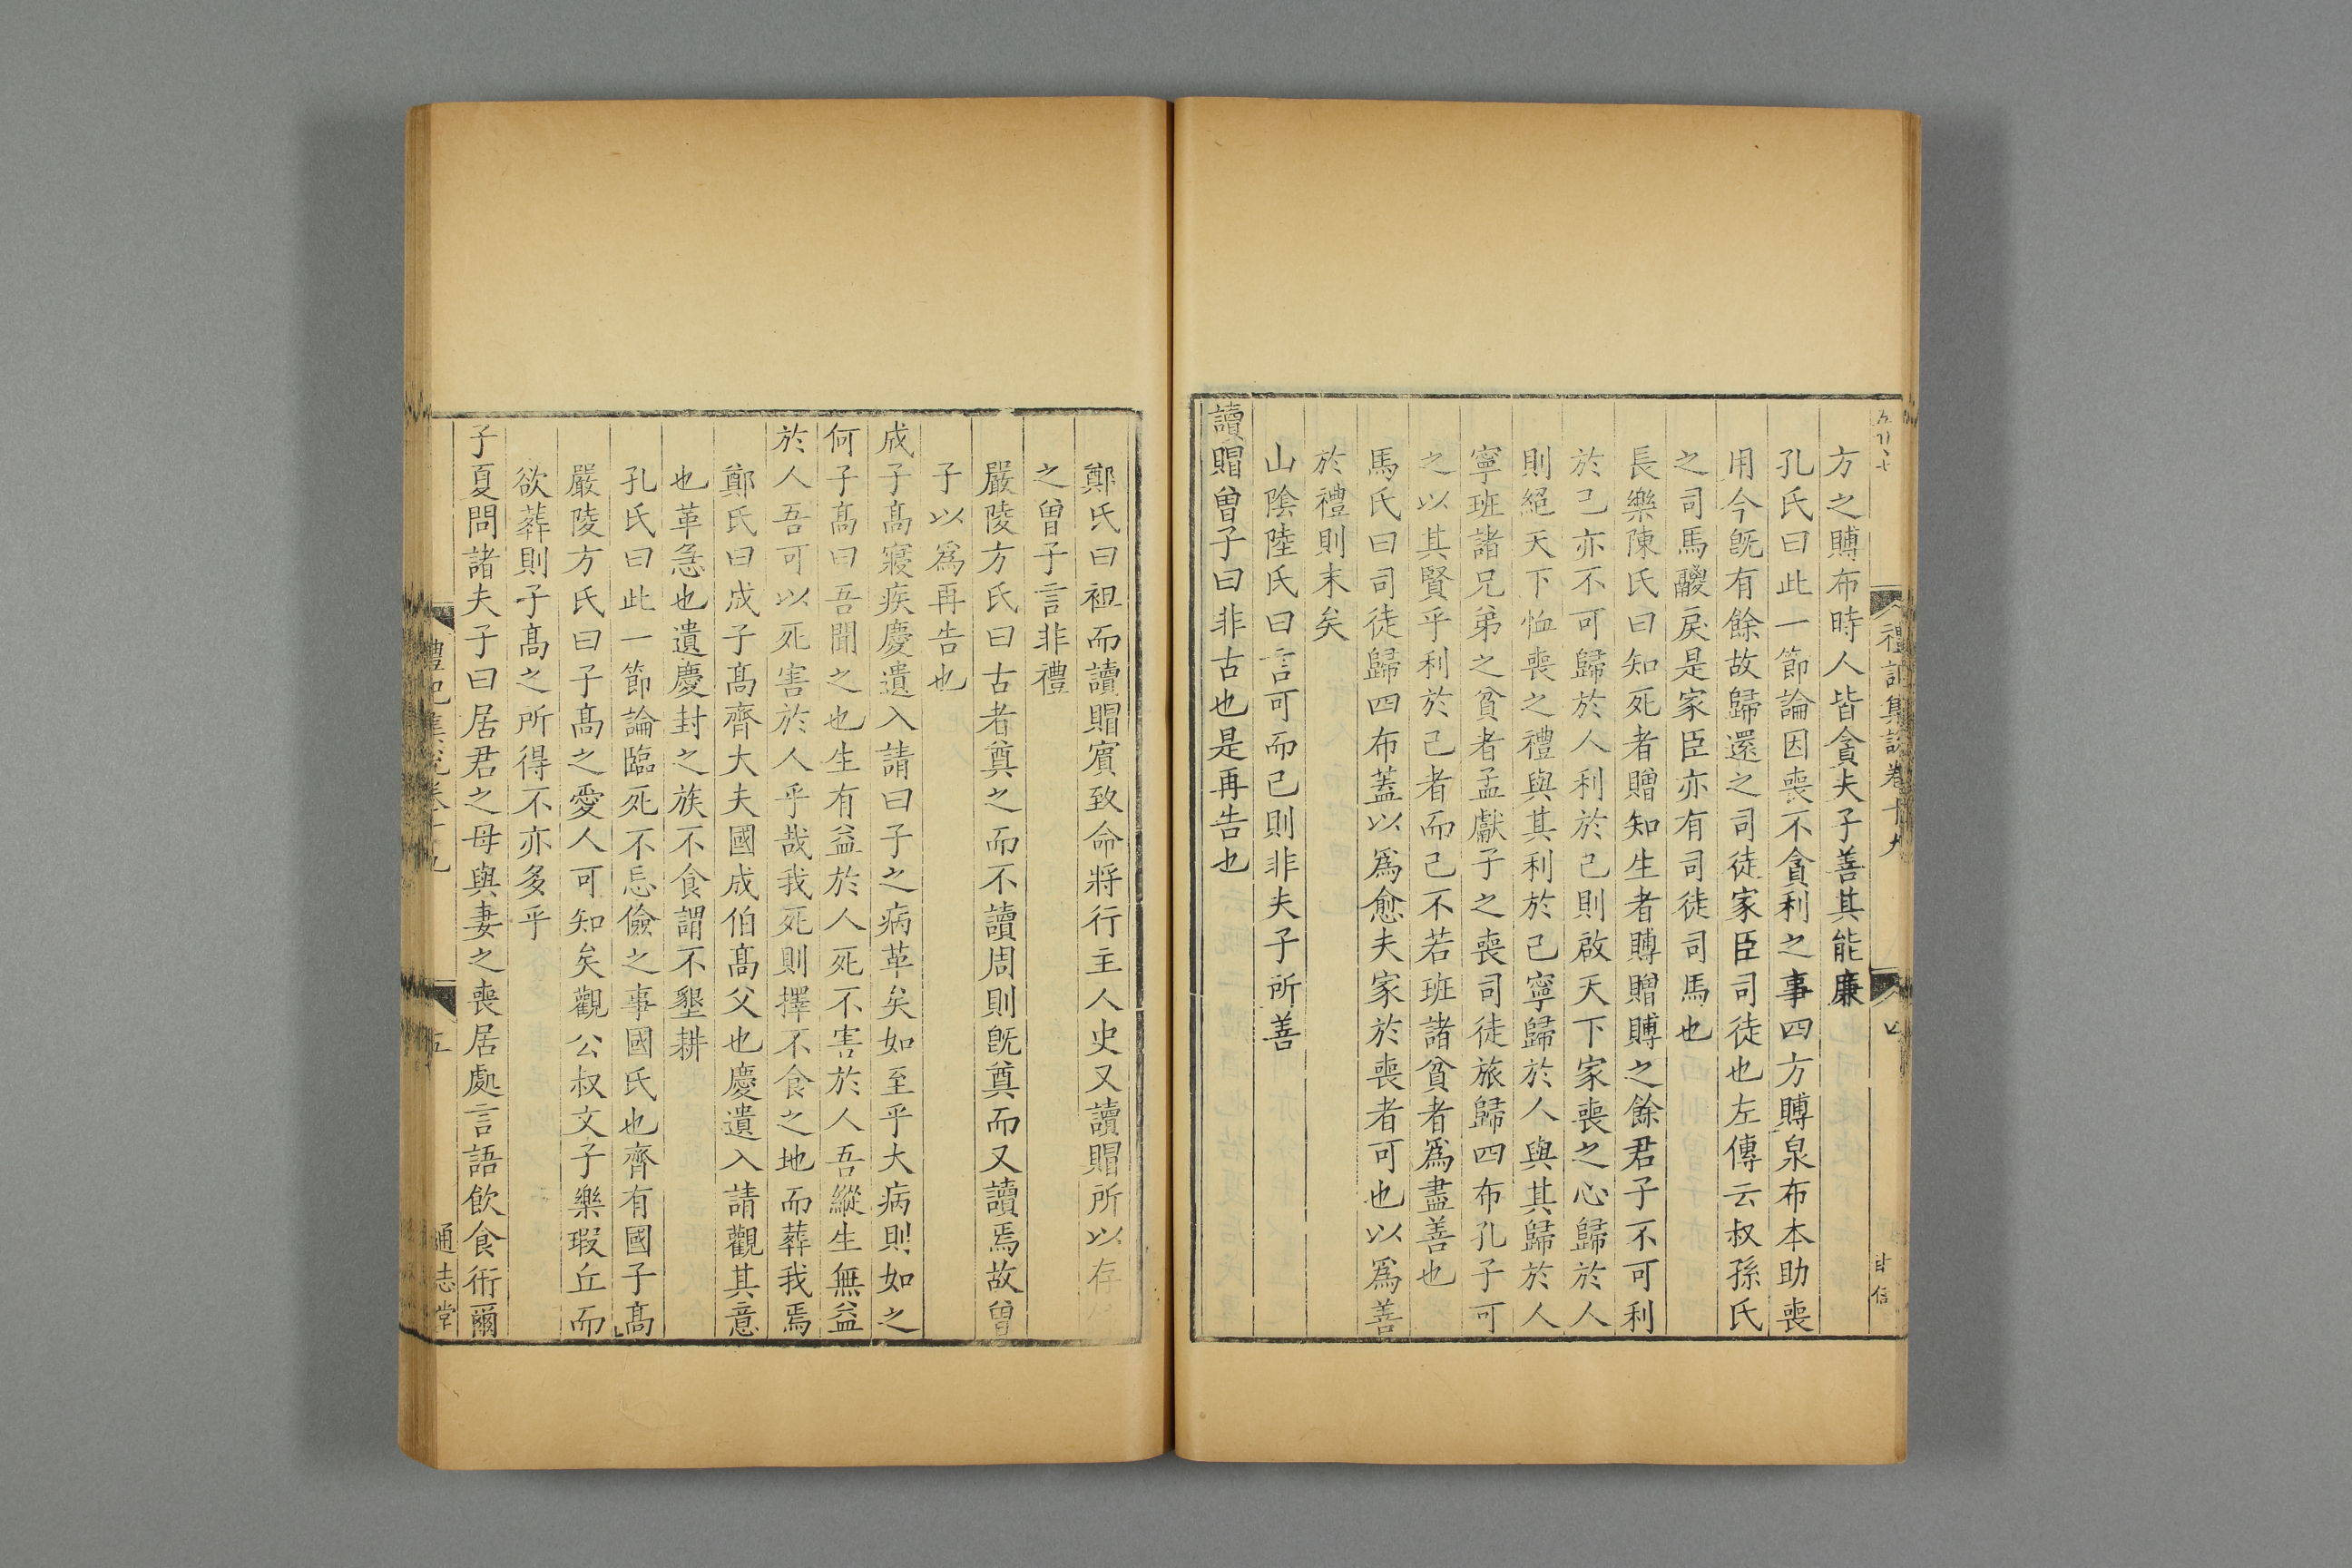 禮記集說卷十九
方之賻布時人皆貪夫子善其能廉
孔氏曰此一節論因喪不貪利之事四方賻泉布本助喪
用今旣有餘故歸還之司徒家臣司徒也左傳云叔孫氏
之司馬鬷戾是家臣亦有司徒司馬也
長樂陳氏曰知死者贈知生者賻贈賻之餘君子不可利
於己亦不可歸於人利於己則啟天下家喪之心歸於人
則絕天下恤喪之禮與其利於己寧歸於人與其歸於人
寧班諸兄弟之貧者孟獻子之喪司徒旅歸四布孔子可
之以其賢乎利於己者而己不若班諸貧者爲盡善也
馬氏曰司徒歸四布蓋以爲愈夫家於喪者可也以爲善
於禮則末矣
山陰陸氏曰言可而已則非夫子所善
讀賵曾子曰非古也是再告也
鄭氏曰祖而讀賵賓致命將行主人史又讀賵所以存
之曾子言非禮
嚴陵方氏曰古者奠之而不讀周則旣奠而又讀焉故曾
子以爲再告也
成子高寢疾慶遺入請曰子之病革矣如至乎大病則如之
何子高曰吾聞之也生有益於人死不害於人吾縱生無益
於人吾可以死害於人乎哉我死則擇不食之地而葬我焉
鄭氏曰成子高齊大夫國成伯高父也慶遺入請觀其意
也革急也遺慶封之族不食謂不墾耕
孔氏曰此一節論臨死不忘儉之事國氏也齊有國子高
嚴陵方氏曰子高之愛人可知矣觀公叔文子樂瑕丘而
欲葬則子高之所得不亦多乎
子夏問諸夫子曰居君之母與妻之喪居處言語飲食衎爾
禮記集說卷十九
五
通志堂